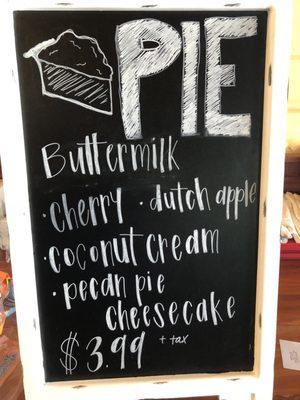 PIE
Buttermilk
· cherry · dutch apple
· coconut cream
· pecan pie
cheesecake
$3.99 + tax